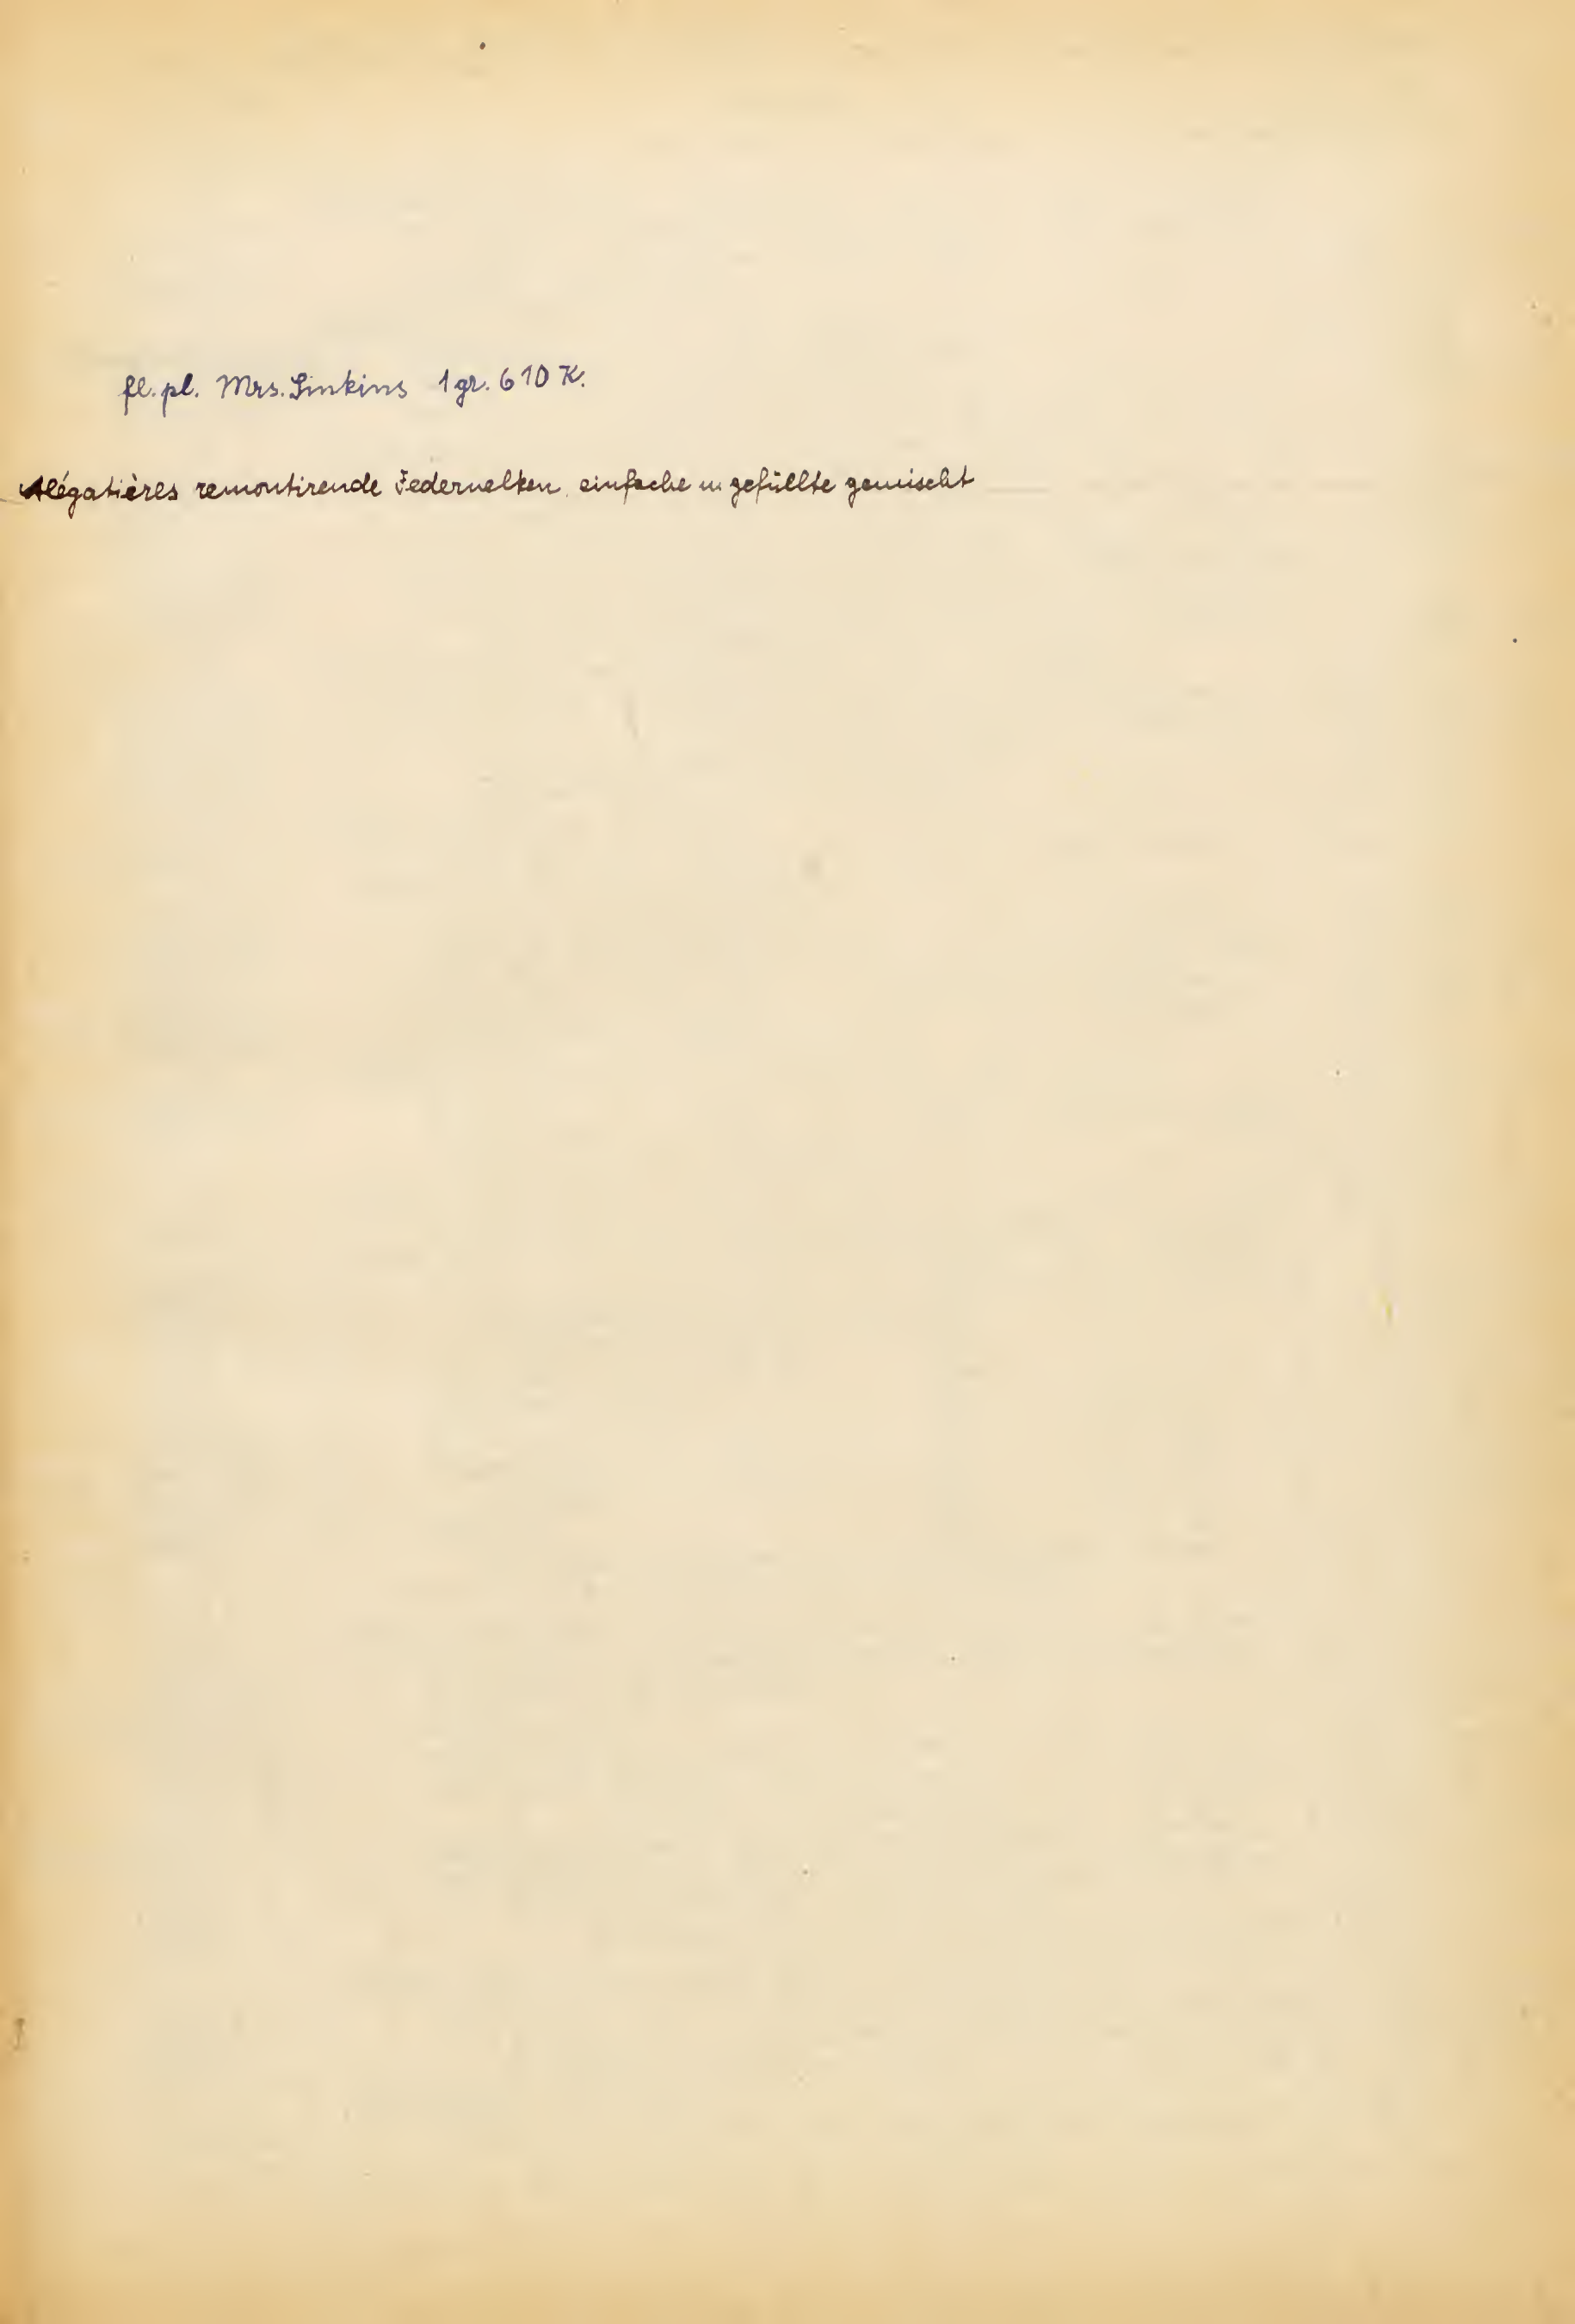 fl. pl. Mrs. Sinkins 1 gr. 610 K.
Alégatières remontirende Federnelken einfache u. gefüllte gemischt